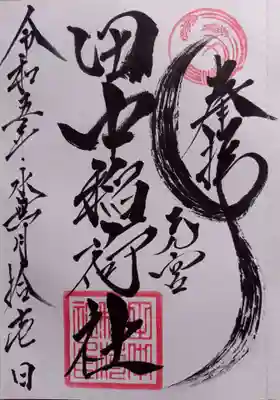 奉拝
元宮
田中稲荷社
令和五年水無月拾壱日